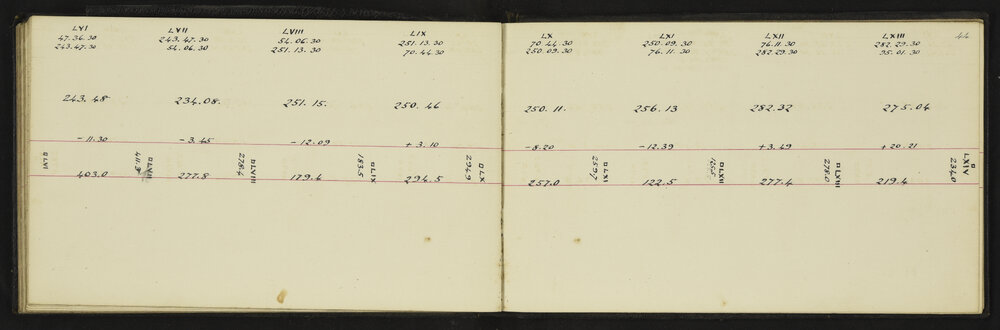 LVI LVII LVIII LIX
47.36.30 243.47.30 54.06.30 251.13.30
243.47.30 54.06.30 251.13.30 70.44.30
243.48 234.08. 251.15. 250.46
-11.30 -3.45 -12.09 +3.10
□LVI 411.3 □LVII 278.4 □LVIII 183.5 □LIX 294.9 □LX
403.0 277.8 179.4 294.5
44
LX LXI LXII LXIII
70.44.30 250.09.30 76.11.30 282.29.30
250.09.30 76.11.30 282.29.30 95.01.30
250.11. 256.13 282.32 275.04
-8.20 -12.39 +3.49 +20.21
259.7 □LXI □LXII 278.0 □LXIII 234.0 □LXIV
257.0 122.5 277.4 219.4